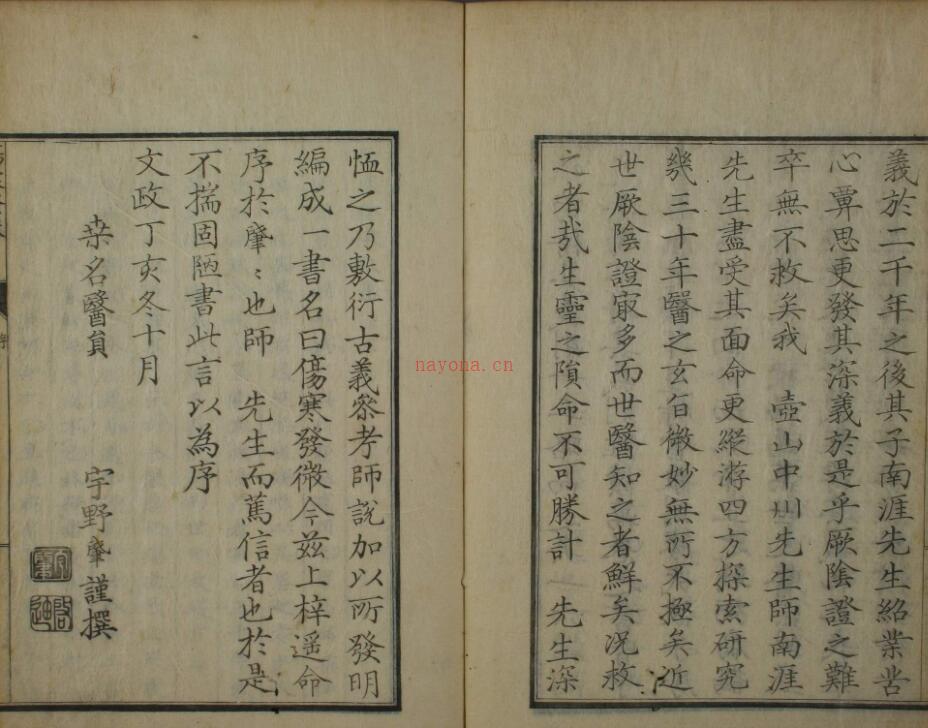 義於二千年之後其子南涯先生紹業苦
心覃思更發其深義於是乎厥陰證之難
卒無不救矣我　壺山中川先生師南涯
先生盡受其面命更縱游四方探索研究
幾三十年醫之玄旨微妙無所不極矣近
世厥陰證㝡多而世醫知之者鮮矣况救
之者㢤生靈之隕命不可勝計　先生深
恤之乃敷衍古義叅考師說加以所發明
編成一書名曰傷寒發微今茲上梓遥命
序於肇〻也師　先生而篤信者也於是
不揣固陋書此言以為序
文政丁亥冬十月
桒名醫員　宇野肇謹撰
nayona.cn